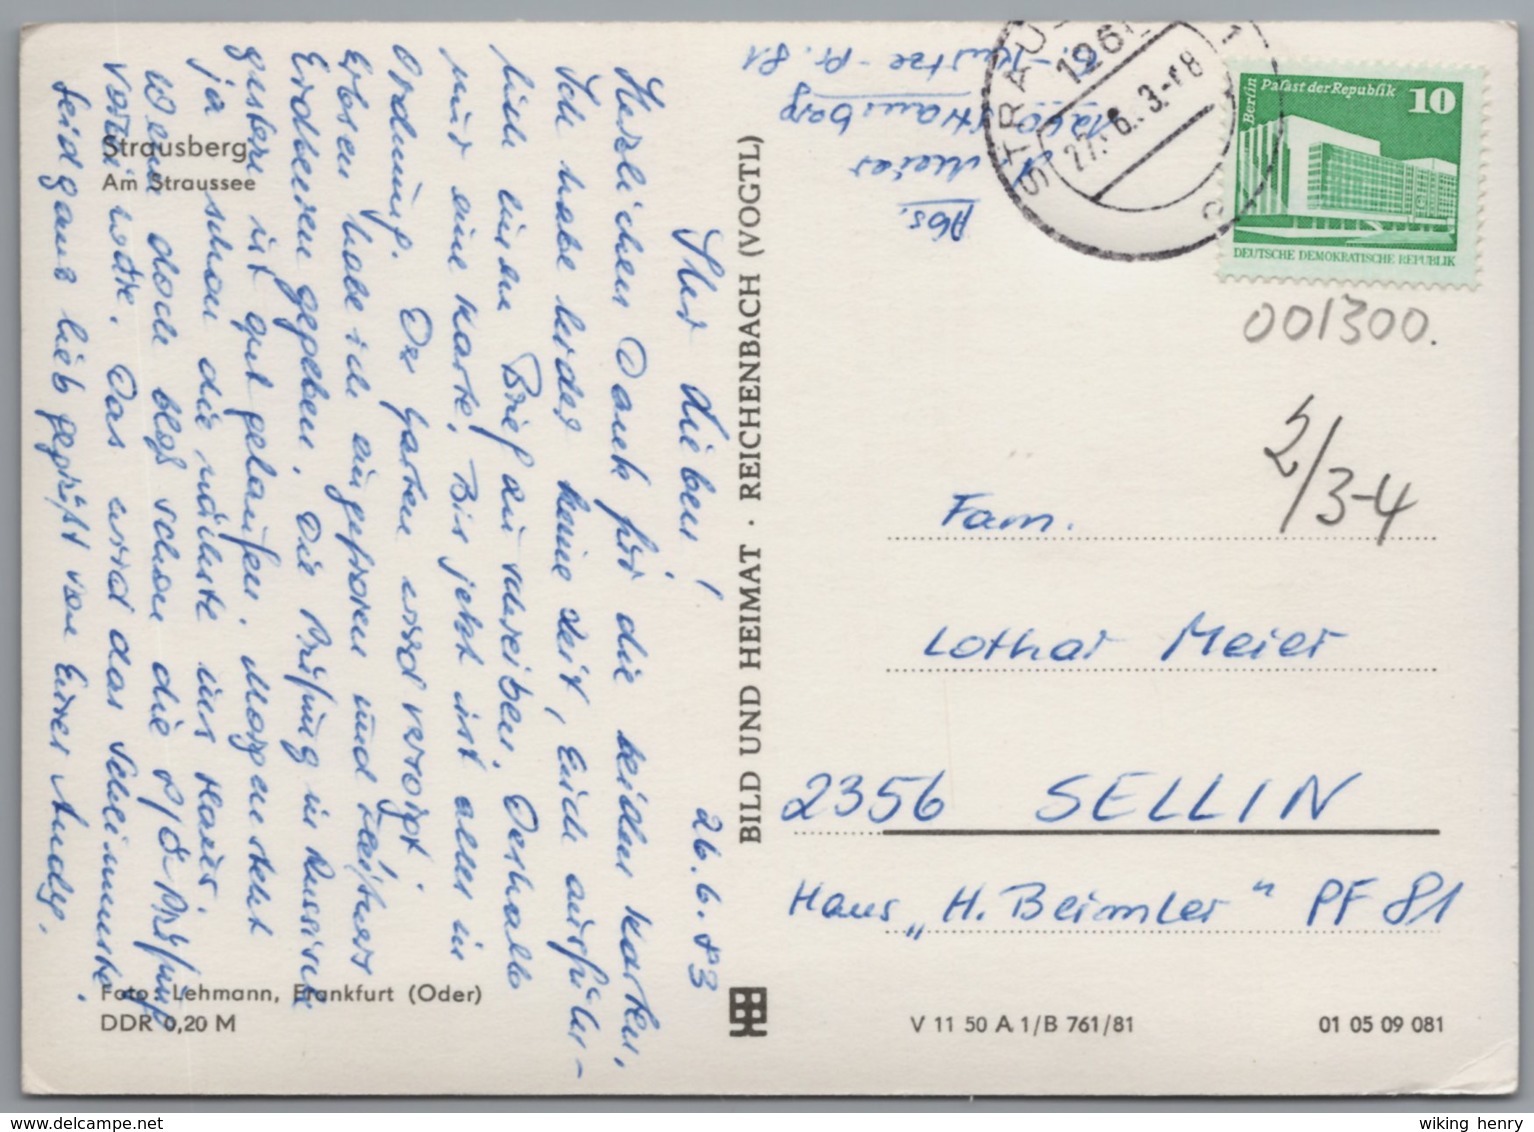 Strausberg
Am Straussee
26.6.83
Ihr Lieben!
Herzlichen Dank für die beiden Karten.
Ich habe leider keine Zeit, Euch ausführ-
lich einen Brief zu schreiben. Deshalb
nur eine Karte. Bis jetzt ist alles in
Ordnung. Der Garten wird versorgt.
Erbsen habe ich eingefroren und
Erdbeeren gegeben. Die Prüfung in Russisch
gestern ist gut gelaufen. Morgen steht
ja schon die nächste ins Haus.
Wenn doch bloß schon die Prüfung
vorbei wäre. Das wird das Schlimmste.
Seid ganz lieb gegrüßt von Eurer Andy.
Foto: Lehmann, Frankfurt (Oder)
DDR 0,20 M
BILD UND HEIMAT · REICHENBACH (VOGTL)
Abs.
Meier
1260 Strausberg
Pr. 81
STRAUS
1260
27.-6.83.-18
1
a
Berlin
Palast der Republik
10
DEUTSCHE DEMOKRATISCHE REPUBLIK
001300.
2/3-4
Fam.
Lothar Meier
2356 SELLIN
Haus „H. Beimler" PF 81
V 11 50 A 1/B 761/81
01 05 09 081
wiking henry
www.delcampe.net